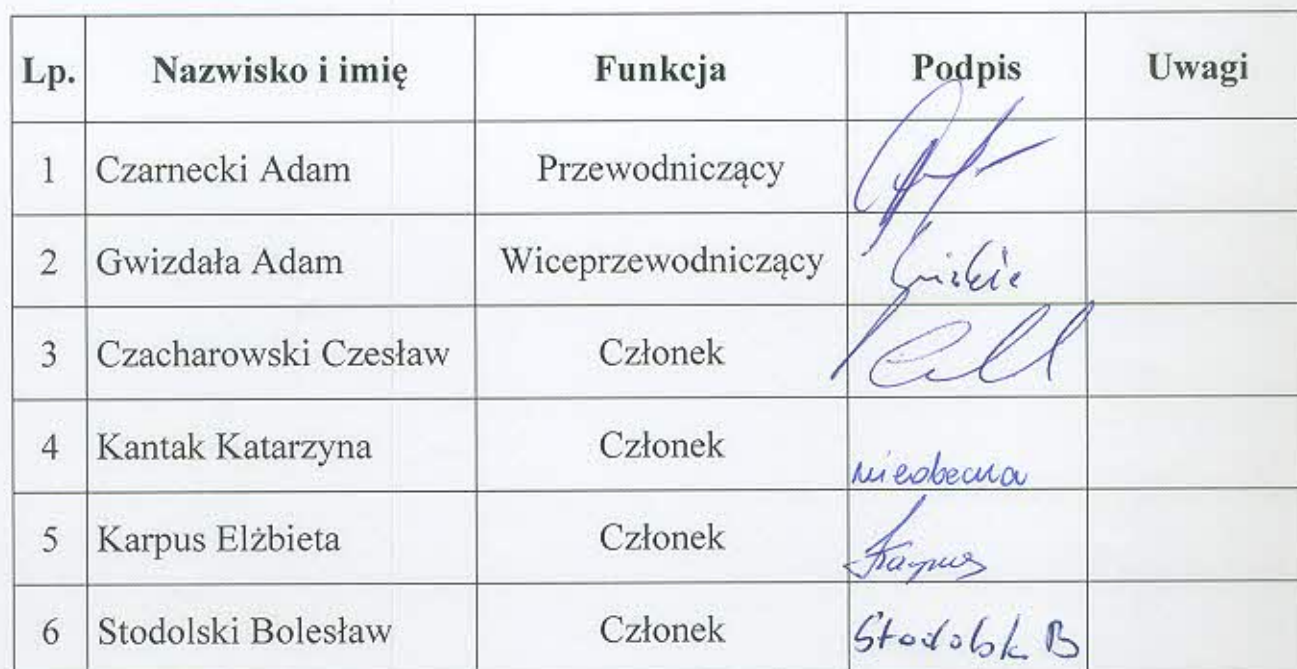 Lp. Nazwisko i imię Funkcja Podpis Uwagi
1 Czarnecki Adam Przewodniczący
2 Gwizdała Adam Wiceprzewodniczący
3 Czacharowski Czesław Członek
4 Kantak Katarzyna Członek nieobecna
5 Karpus Elżbieta Członek Karpus
6 Stodolski Bolesław Członek Stodolsk B